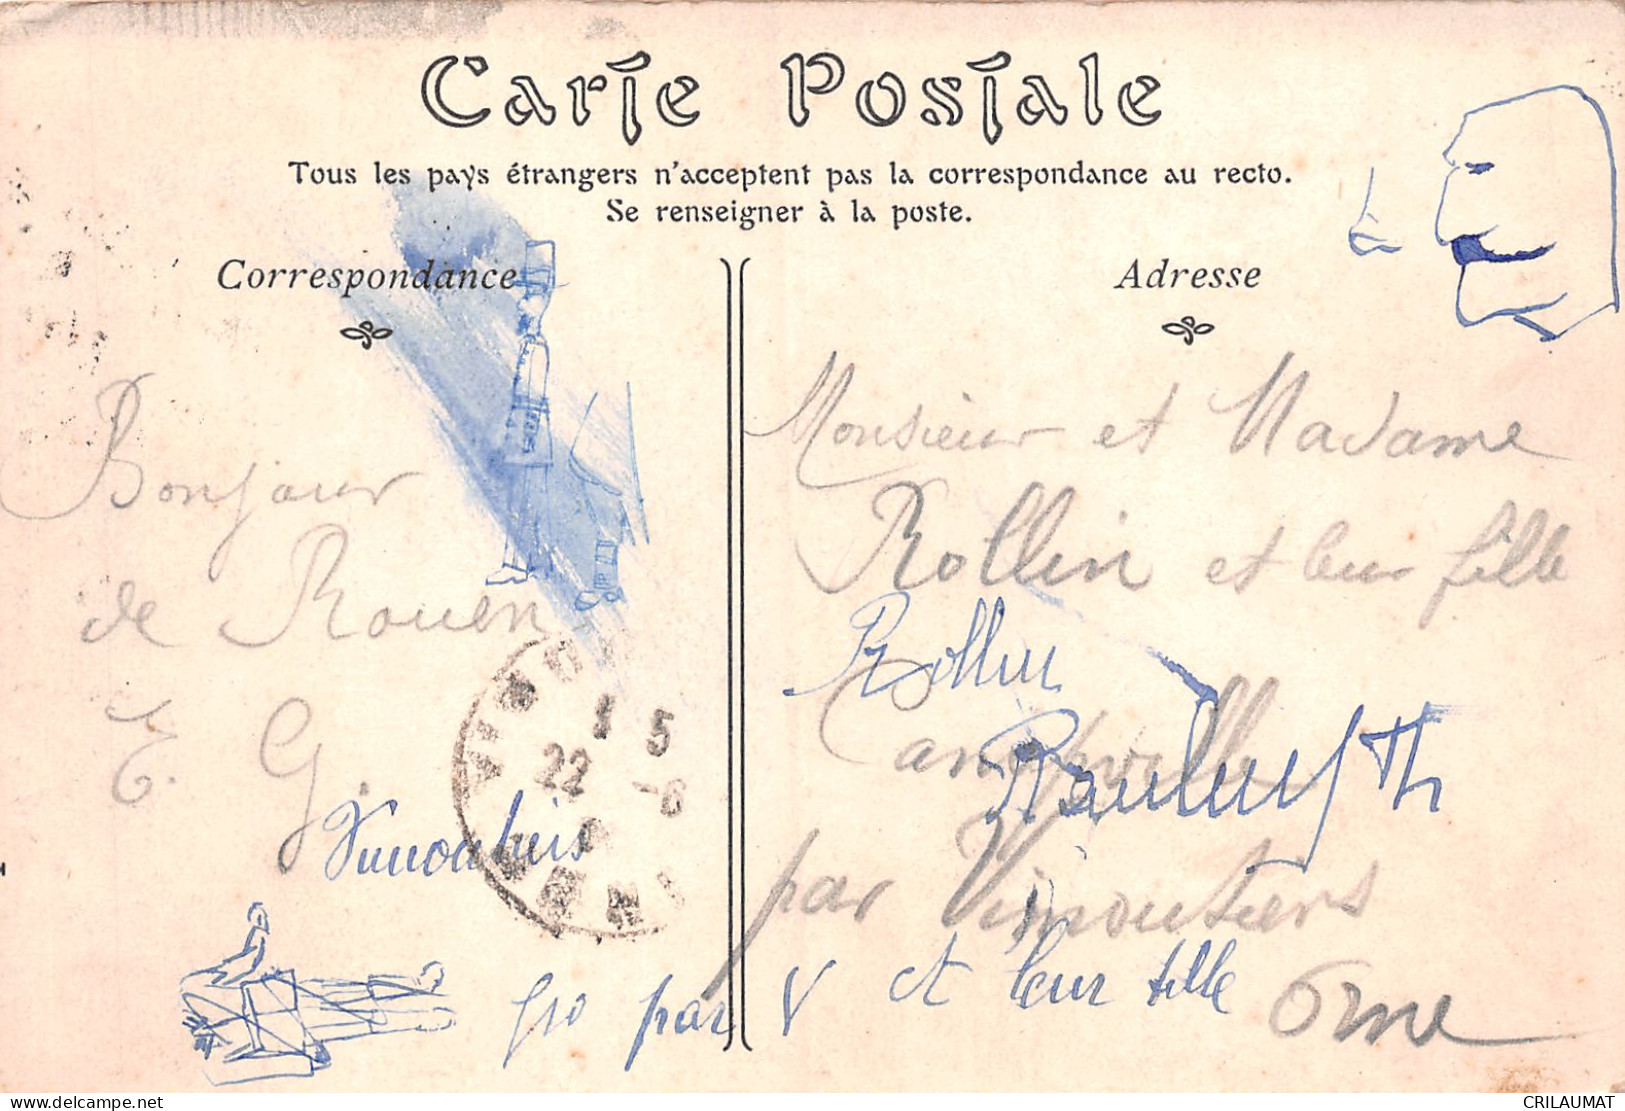 Carte Postale
Tous les pays étrangers n'acceptent pas la correspondance au recto.
Se renseigner à la poste.
Correspondance
Adresse
Bonjour
de Rouen
E. G.
Monsieur et Madame
Rollin et leur fille
Rollin
Canapville
par Vimoutiers
Orne
et leur fille
par V
22
5
CRILAUMAT